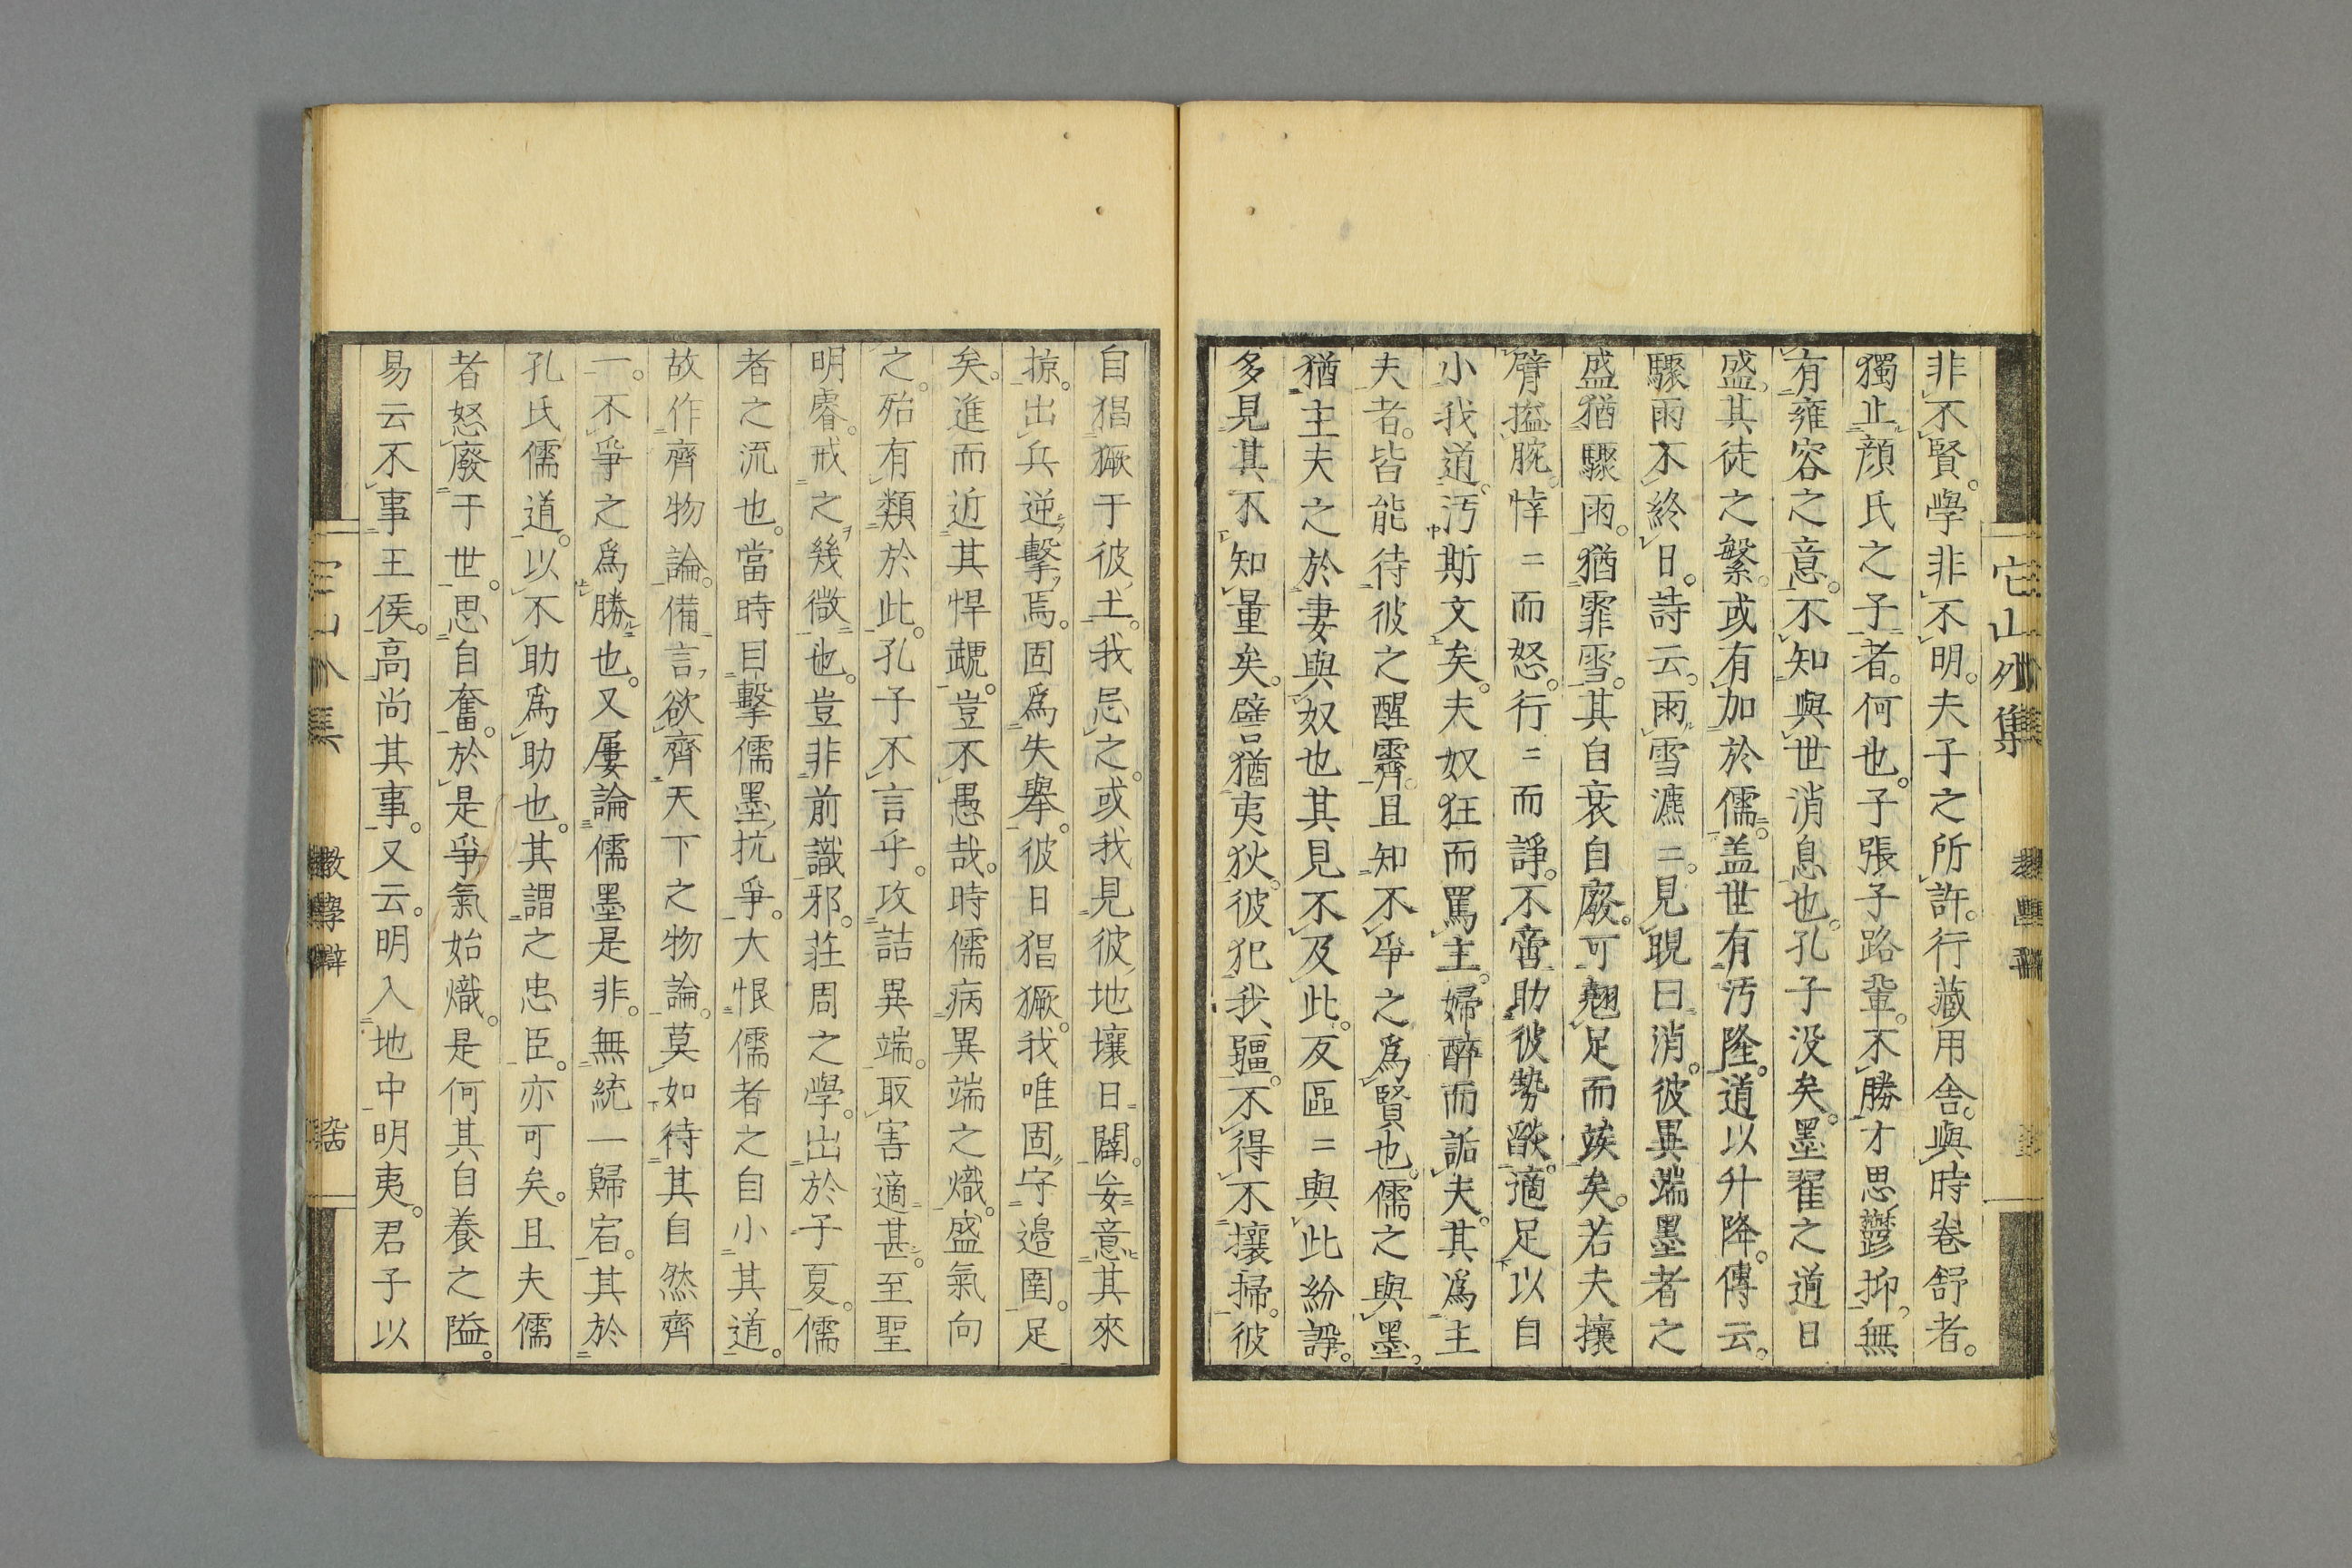 它山外集
非不賢。學非不明。夫子之所許。行藏用舍。與時卷舒者。
獨止顏氏之子者。何也。子張子路輩。不勝才思鬱抑。無
有雍容之意。不知與世消息也。孔子没矣。墨翟之道日
盛。其徒之繁。或有加於儒。盖世有汚隆。道以升降。傳云。
驟雨不終日。詩云。雨雪瀌〻。見晛曰消。彼異端墨者之
盛。猶驟雨。猶霏雪。其自衰自廢。可翹足而竢矣。若夫攘
臂搤腕。悻〻而怒。行〻而諍。不啻助彼勢燄。適足以自
小我道。汚斯文矣。夫奴狂而罵主。婦醉而詬夫。其爲主
夫者。皆能待彼之醒霽。且知不爭之爲賢也。儒之與墨。
猶主夫之於妻與奴也。其見不及此。反區〻與此紛諍。
多見其不知量矣。譬猶夷狄。彼犯我疆。不得不攘掃。彼
自猖獗于彼土。我忌之。或我見彼地壤日闢。妄意其來
掠。出兵逆擊焉。固爲失擧。彼日猖獗。我唯固守邉圉。足
矣。進而近其悍覷。豈不愚哉。時儒病異端之熾。盛氣向
之。殆有類於此。孔子不言乎。攻詰異端。取害適甚。至聖
明睿。戒之幾微也。豈非前識邪。莊周之學。出於子夏。儒
者之流也。當時目擊儒墨抗爭。大恨儒者之自小其道。
故作齊物論。備言欲齊天下之物論。莫如待其自然齊
一。不爭之爲勝也。又屢論儒墨是非。無統一歸宿。其於
孔氏儒道。以不助爲助也。其謂之忠臣。亦可矣。且夫儒
者怒廢于世。思自奮。於是爭氣始熾。是何其自養之隘。
易云不事王侯。高尚其事。又云。明入地中明夷。君子以
教學辯